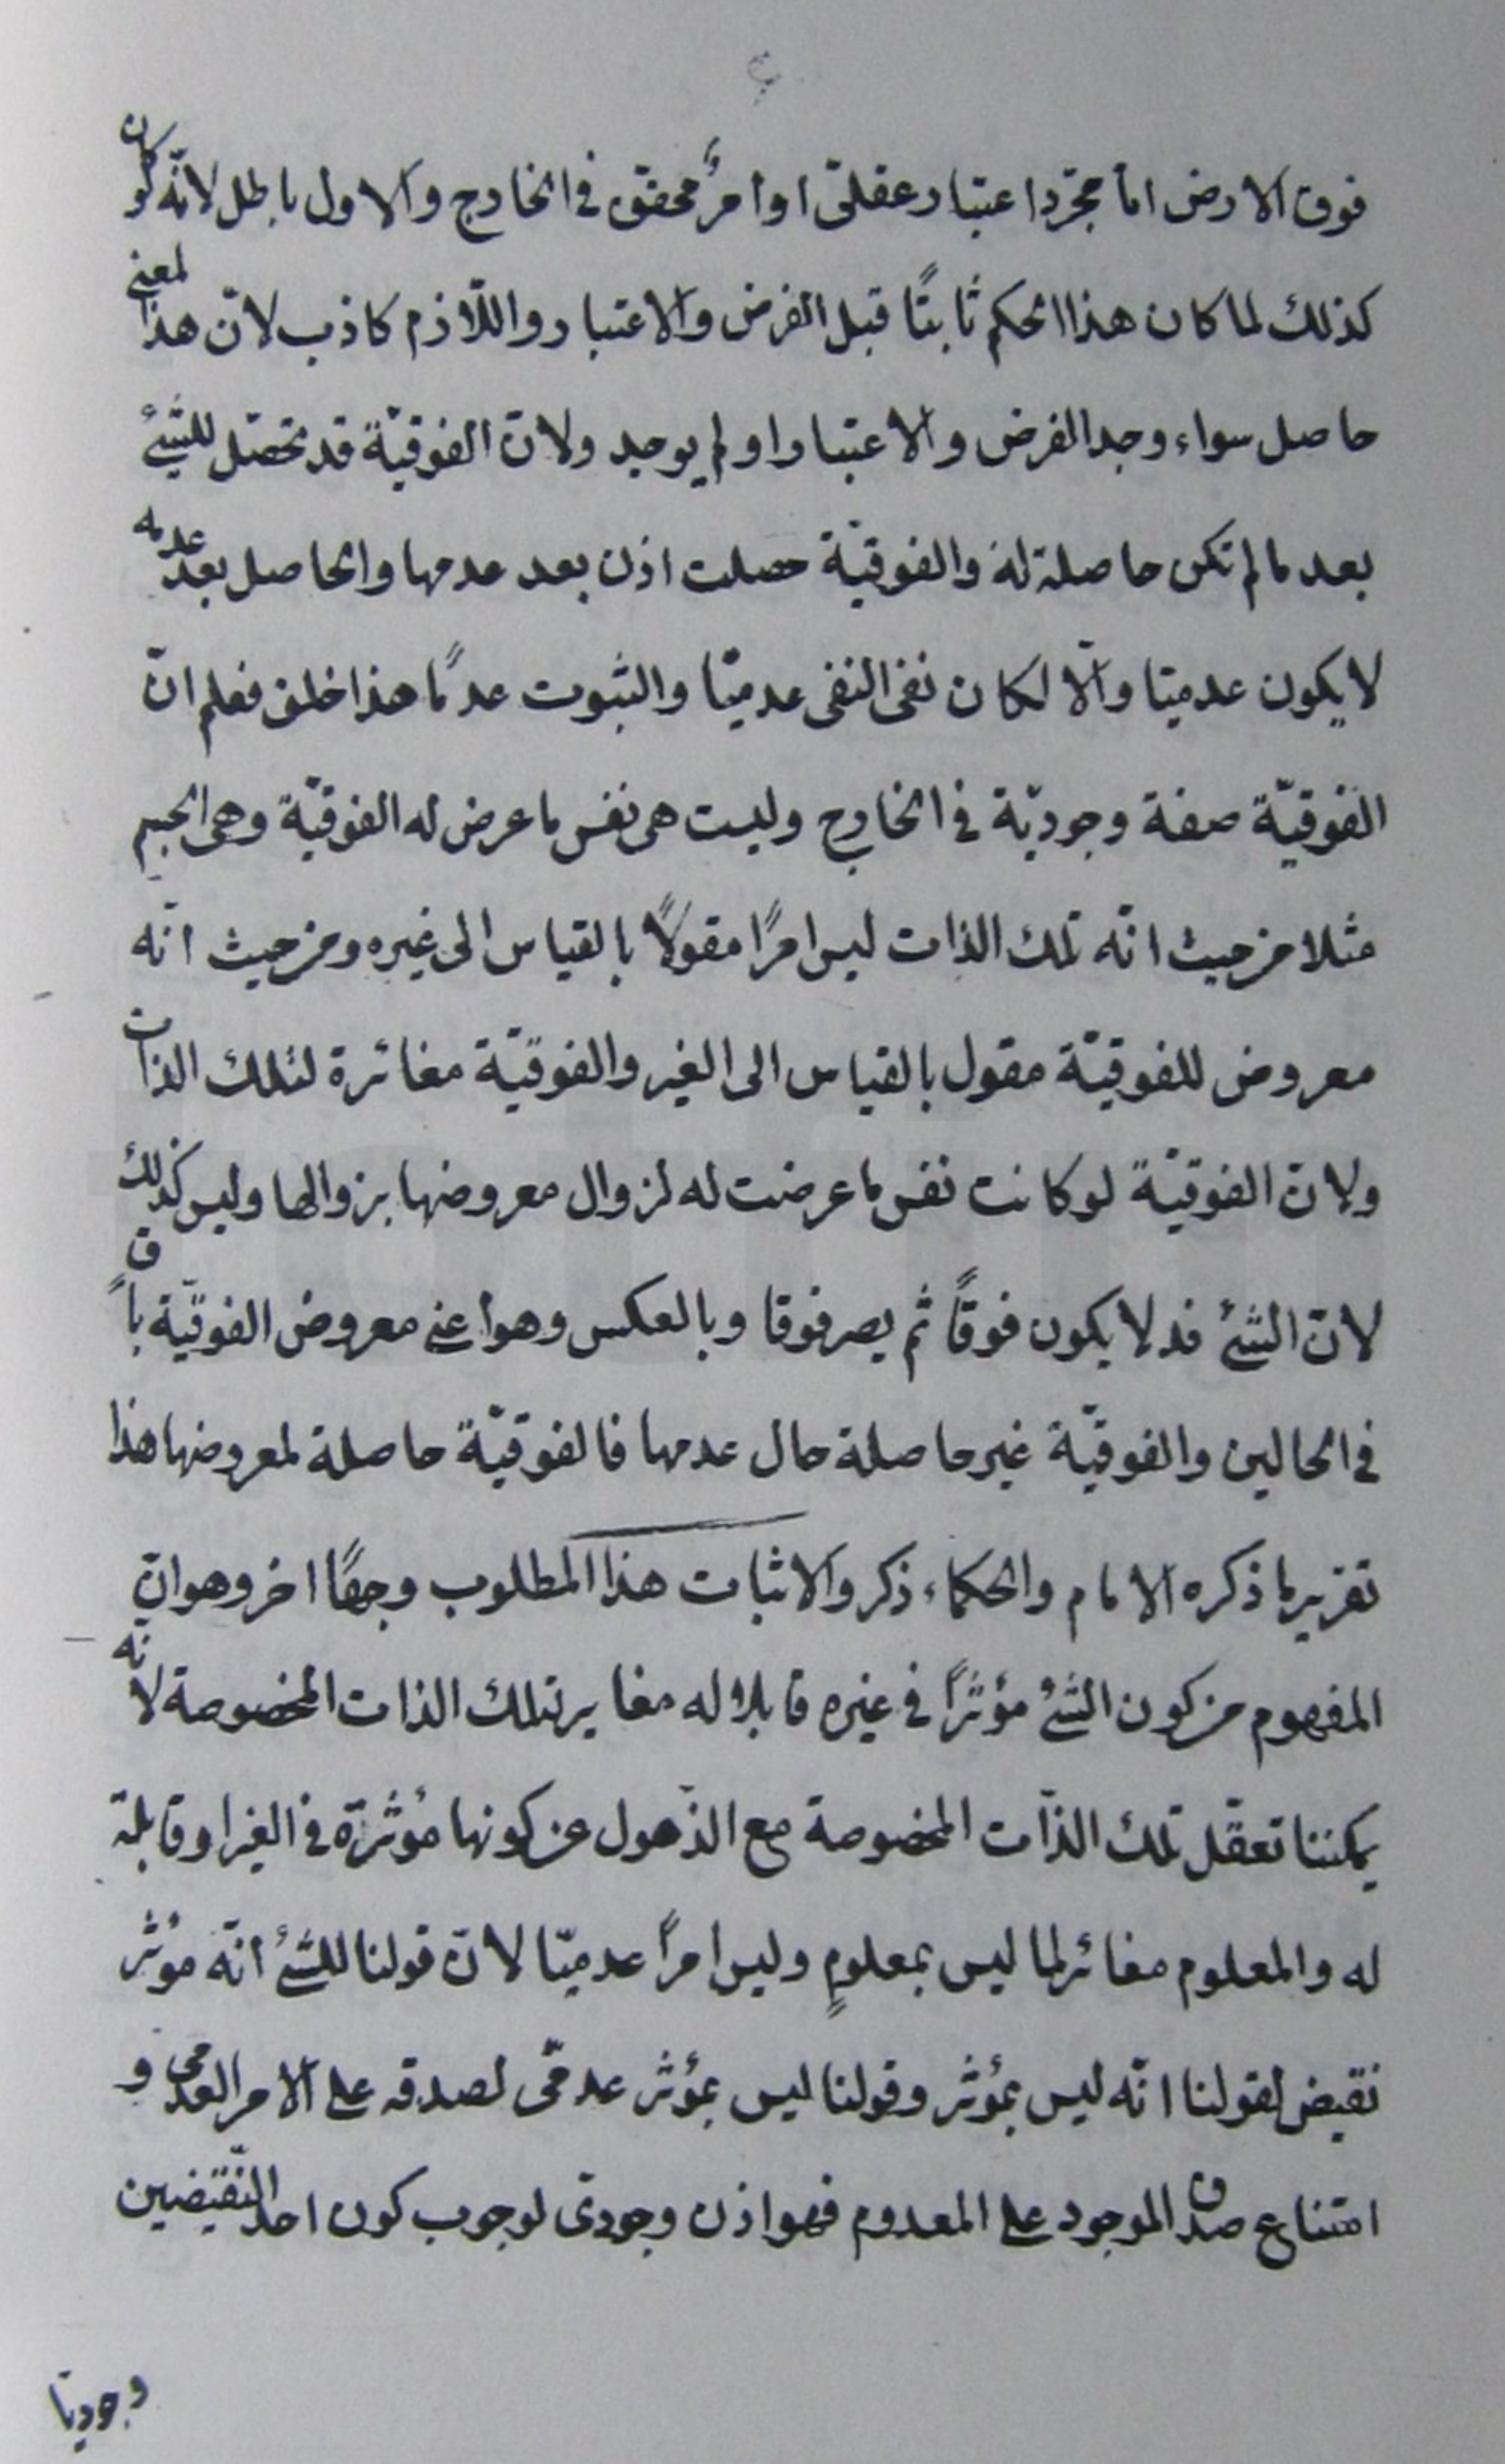 فوق الارض اما مجرّد اعتبار عقلىّ او امرٌ محقق فى الخارج والاول باطل لانّه لو كان
كذلك لما كان هذا الحكم ثابتًا قبل الفرض والاعتبار واللّازم كاذب لانّ هذا المعنى
حاصل سواء وجد الفرض والاعتبار او لم يوجد ولانّ الفوقيّة قد تحصل للشئ
بعد ما لم تكن حاصلة له والفوقيّة حصلت اذن بعد عدمها والحاصل بعد عدمه
لا يكون عدميّا والّا لكان نفى النفى عدميّا والثبوت عدمًا هذا خلف فعلم انّ
الفوقيّة صفة وجوديّة فى الخارج وليست هى نفس ما عرض له الفوقيّة وهى الجسم
مثلا من حيث انّه تلك الذات ليس امرًا مقولًا بالقياس الى غيره ومن حيث انّه
معروض للفوقيّة مقول بالقياس الى الغير والفوقيّة مغائرة لتلك الذات
ولانّ الفوقيّة لو كانت نفس ما عرضت له لزوال معروضها بزوالها وليس كذلك
لانّ الشئ قد لا يكون فوقًا ثم يصر فوقا وبالعكس وهو اعنى معروض الفوقيّة باقٍ
فى الحالين والفوقيّة غير حاصلة حال عدمها فالفوقيّة حاصلة لمعروضها هذا
تقرير ما ذكره الامام والحكماء ذكروا لاثبات هذا المطلوب وجهًا اخر وهو انّ
المفهوم من كون الشئ مؤثرًا فى غيره قابلا له مغاير لتلك الذات المخصوصة لانّه
يمكننا تعقّل تلك الذّات المخصوصة مع الذّهول عن كونها مؤثرة فى الغير او قابلة
له والمعلوم مغائر لما ليس بمعلومٍ وليس امرًا عدميّا لانّ قولنا للشئ انّه مؤثر
نقيض لقولنا انّه ليس بمؤثر وقولنا ليس بمؤثر عدمىّ لصدقه على الامر العدمى و
امتناع صدق الموجود على المعدوم فهو اذن وجودىّ لوجوب كون احد النّقيضين
وجوديّا